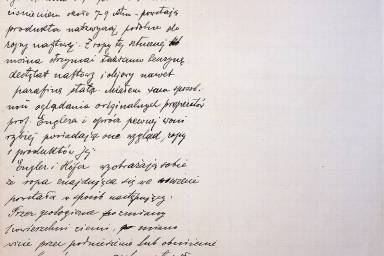 ciśnieniem około 7-9 atm - powstają
produkta nadzwyczaj podobne do
ropy naftowej. Z ropy tej sztucznej
można otrzymać zarówno benzynę
destylat naftowy i olejowy nawet
parafinę stałą. Miałem sam sposob
ność oglądania oryginalnych preparatów
prof. Englera i oprócz pewnej woni
rybiej posiadają one wygląd ropy
i produktów jej.
Engler i Höfer wyobrażają sobie
że ropa znajdująca się we
powstała w sposób następujący.
Przez geologiczne przemiany
powierzchni ziemi, a miano
wicie przez podniesienie lub obniżenie